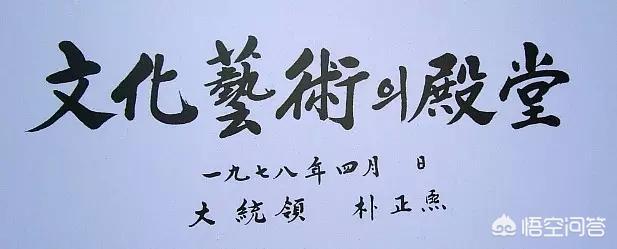 文化藝術의殿堂
一九七八年四月 日
大統領 朴正熙
悟空问答